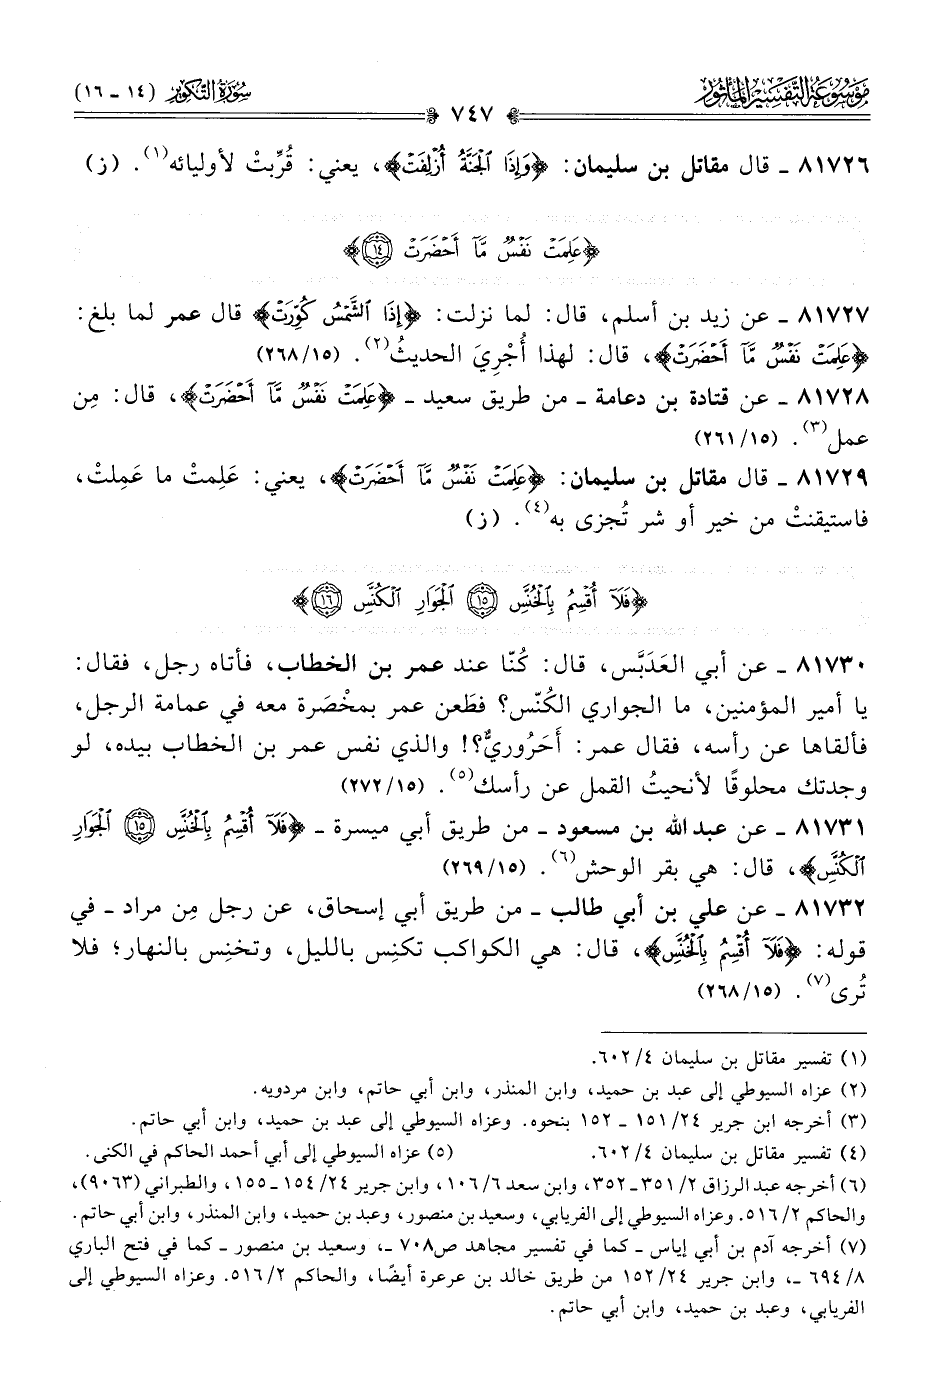 مَوْسُوعَة التَّفْسِير المَأْثُور
سُورَةُ التَّكْوِيرِ (١٤ - ١٦)
٧٤٧
٨١٧٢٦ - قال مقاتل بن سليمان: ﴿وَإِذَا ٱلْجَنَّةُ أُزْلِفَتْ﴾، يعني: قُرِّبتْ لأوليائه(١). (ز)
﴿عَلِمَتْ نَفْسٌ مَّآ أَحْضَرَتْ ١٤﴾
٨١٧٢٧ - عن زيد بن أسلم، قال: لما نزلت: ﴿إِذَا ٱلشَّمْسُ كُوِّرَتْ﴾ قال عمر لما بلغ:
﴿عَلِمَتْ نَفْسٌ مَّآ أَحْضَرَتْ﴾، قال: لهذا أُجْرِيَ الحديثُ(٢). (٢٦٨/١٥)
٨١٧٢٨ - عن قتادة بن دعامة - من طريق سعيد - ﴿عَلِمَتْ نَفْسٌ مَّآ أَحْضَرَتْ﴾، قال: مِن
عمل(٣). (٢٦١/١٥)
٨١٧٢٩ - قال مقاتل بن سليمان: ﴿عَلِمَتْ نَفْسٌ مَّآ أَحْضَرَتْ﴾، يعني: عَلِمتْ ما عَمِلتْ،
فاستيقنتْ من خير أو شر تُجزى به(٤). (ز)
﴿فَلَآ أُقْسِمُ بِٱلْخُنَّسِ ١٥ ٱلْجَوَارِ ٱلْكُنَّسِ ١٦﴾
٨١٧٣٠ - عن أبي العَدَبَّس، قال: كُنّا عند عمر بن الخطاب، فأتاه رجل، فقال:
يا أمير المؤمنين، ما الجواري الكُنّس؟ فطَعن عمر بمخْصَرة معه في عمامة الرجل،
فألقاها عن رأسه، فقال عمر: أَحَرُوريٌّ؟! والذي نفس عمر بن الخطاب بيده، لو
وجدتك محلوقًا لأنحيتُ القمل عن رأسك(٥). (٢٧٢/١٥)
٨١٧٣١ - عن عبد الله بن مسعود - من طريق أبي ميسرة - ﴿فَلَآ أُقْسِمُ بِٱلْخُنَّسِ ١٥ ٱلْجَوَارِ
ٱلْكُنَّسِ﴾، قال: هي بقر الوحش(٦). (٢٦٩/١٥)
٨١٧٣٢ - عن علي بن أبي طالب - من طريق أبي إسحاق، عن رجل مِن مراد - في
قوله: ﴿فَلَآ أُقْسِمُ بِٱلْخُنَّسِ﴾، قال: هي الكواكب تكنِس بالليل، وتخنِس بالنهار؛ فلا
تُرى(٧). (٢٦٨/١٥)
(١) تفسير مقاتل بن سليمان ٦٠٢/٤.
(٢) عزاه السيوطي إلى عبد بن حميد، وابن المنذر، وابن أبي حاتم، وابن مردويه.
(٣) أخرجه ابن جرير ١٥١/٢٤ - ١٥٢ بنحوه. وعزاه السيوطي إلى عبد بن حميد، وابن أبي حاتم.
(٤) تفسير مقاتل بن سليمان ٦٠٢/٤. (٥) عزاه السيوطي إلى أبي أحمد الحاكم في الكنى.
(٦) أخرجه عبد الرزاق ٣٥١/٢ - ٣٥٢، وابن سعد ١٠٦/٦، وابن جرير ١٥٤/٢٤ - ١٥٥، والطبراني (٩٠٦٣)،
والحاكم ٥١٦/٢. وعزاه السيوطي إلى الفريابي، وسعيد بن منصور، وعبد بن حميد، وابن المنذر، وابن أبي حاتم.
(٧) أخرجه آدم بن أبي إياس - كما في تفسير مجاهد ص٧٠٨ -، وسعيد بن منصور - كما في فتح الباري
٦٩٤/٨ -، وابن جرير ١٥٢/٢٤ من طريق خالد بن عرعرة أيضًا، والحاكم ٥١٦/٢. وعزاه السيوطي إلى
الفريابي، وعبد بن حميد، وابن أبي حاتم.